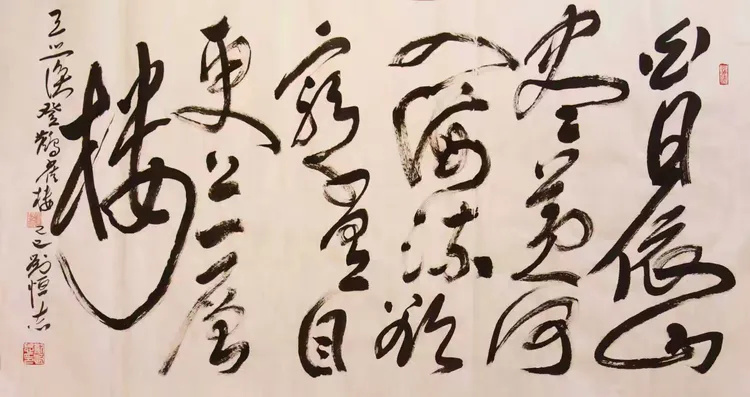 白日依山
尽黄河
入海流欲
穷千里目
更上一层
楼
王之涣登鹳雀楼 乙巳刘恒志